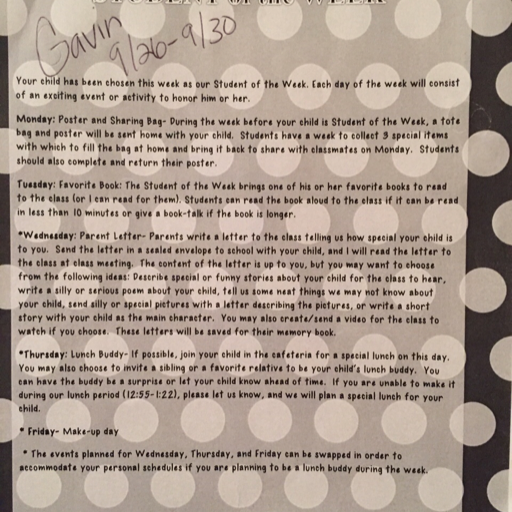 STUDENT OF THE WEEK
Gavin
9/26-9/30
Your child has been chosen this week as our Student of the Week. Each day of the week will consist
of an exciting event or activity to honor him or her.
Monday: Poster and Sharing Bag- During the week before your child is Student of the Week, a tote
bag and poster will be sent home with your child. Students have a week to collect 3 special items
with which to fill the bag at home and bring it back to share with classmates on Monday. Students
should also complete and return their poster.
Tuesday: Favorite Book: The Student of the Week brings one of his or her favorite books to read
to the class (or I can read for them). Students can read the book aloud to the class if it can be read
in less than 10 minutes or give a book-talk if the book is longer.
*Wednesday: Parent Letter- Parents write a letter to the class telling us how special your child is
to you. Send the letter in a sealed envelope to school with your child, and I will read the letter to
the class at class meeting. The content of the letter is up to you, but you may want to choose
from the following ideas: Describe special or funny stories about your child for the class to hear,
write a silly or serious poem about your child, tell us some neat things we may not know about
your child, send silly or special pictures with a letter describing the pictures, or write a short
story with your child as the main character. You may also create/send a video for the class to
watch if you choose. These letters will be saved for their memory book.
*Thursday: Lunch Buddy- If possible, join your child in the cafeteria for a special lunch on this day.
You may also choose to invite a sibling or a favorite relative to be your child's lunch buddy. You
can have the buddy be a surprise or let your child know ahead of time. If you are unable to make it
during our lunch period (12:55-1:22), please let us know, and we will plan a special lunch for your
child.
* Friday- Make-up day
* The events planned for Wednesday, Thursday, and Friday can be swapped in order to
accommodate your personal schedules if you are planning to be a lunch buddy during the week.